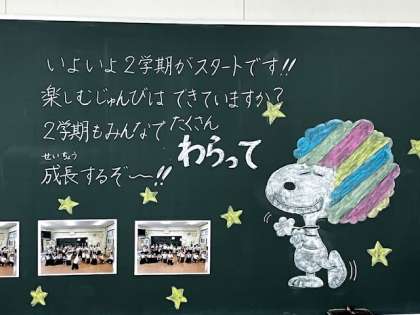 いよいよ2学期がスタートです!!
楽しむじゅんびは できていますか?
2学期もみんなで たくさん わらって
せいちょう
成長するぞ〜!!